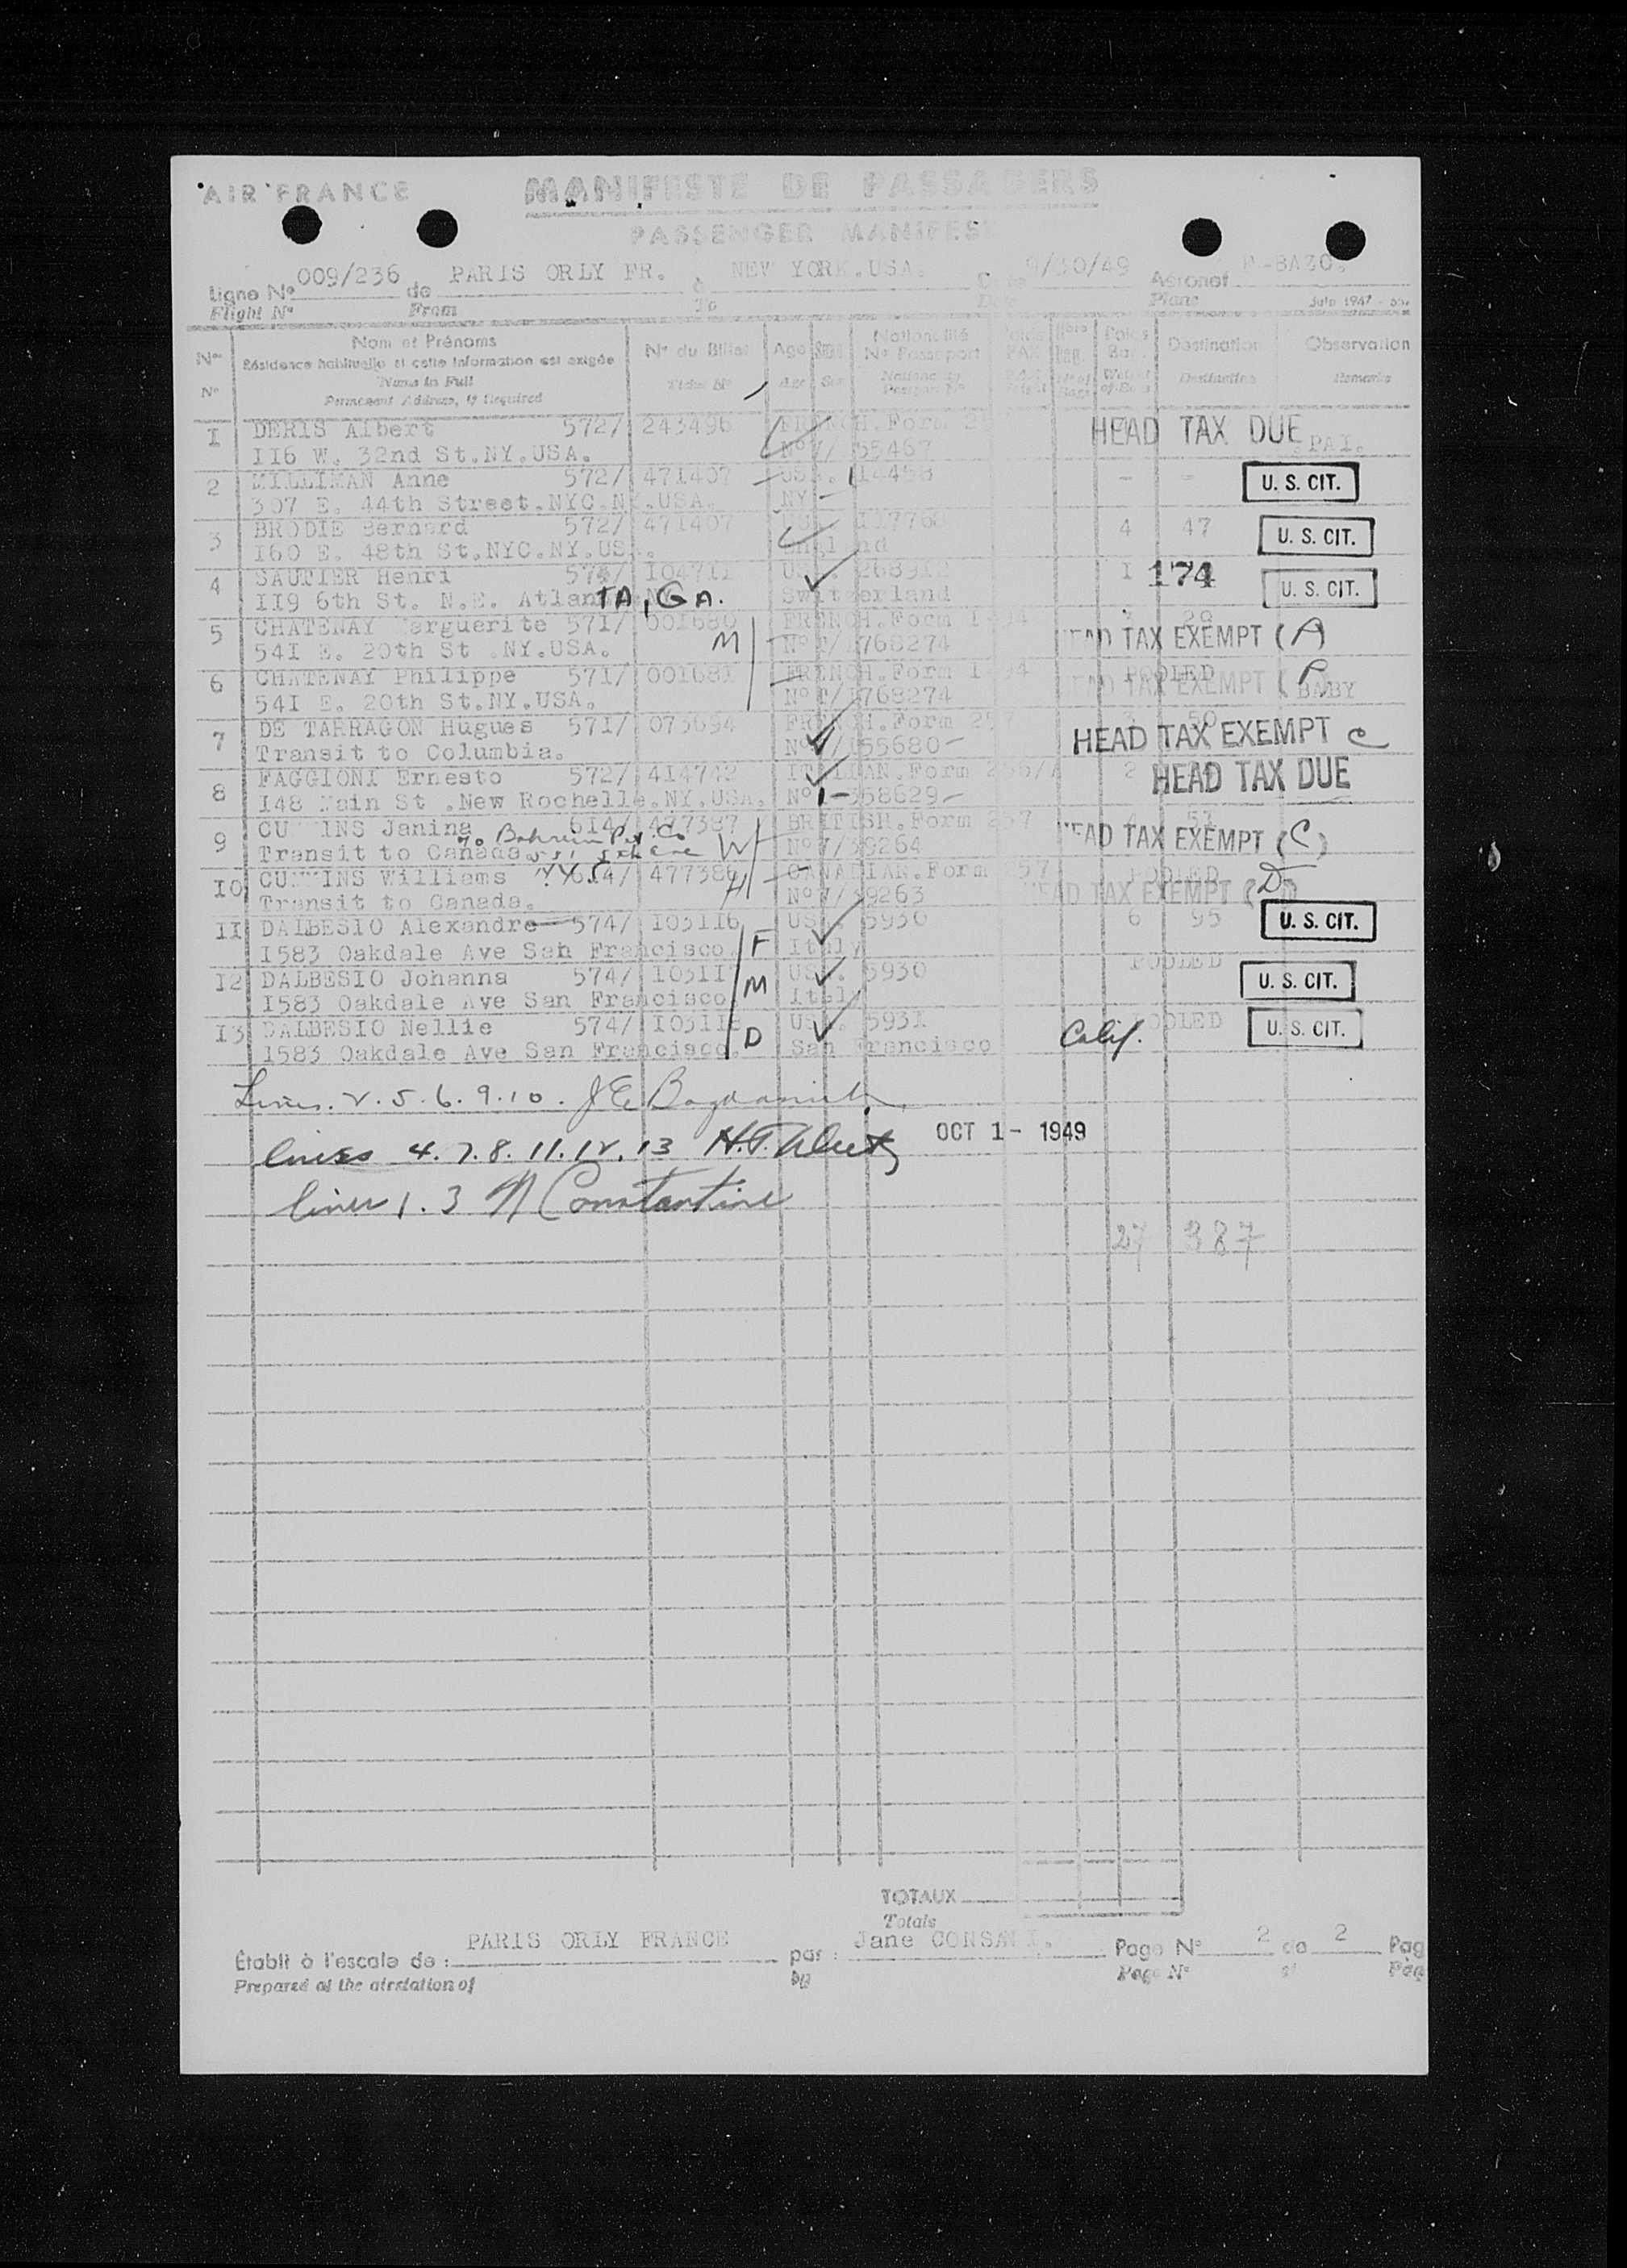 AIR FRANCE
MANIFESTE DE PASSAGERS
PASSENGER MANIFES
Ligne N° 009/236 de PARIS ORLY FR. à NEW YORK.USA. 9/30/49 Aéronef
Flight N° From To Plane
Nos Nom et Prénoms N° du Billet Age Sexe Nationalité Destination Observation
Résidence habituelle si cette information est exigée N° Passeport
N° Name in Full Ticket N° Age Sex Nationality Destination Remarks
Permanent Address, if Required Passport N°
1 DERIS Albert 572/ 243496 FRENCH.Form HEAD TAX DUE
116 W. 32nd St.NY.USA. 55467
2 MILLIMAN Anne 572/ 471407 - - U. S. CIT.
307 E. 44th Street.NYC.NY.USA. NY
3 BRODIE Bernard 572/ 471407 4 47 U. S. CIT.
160 E. 48th St.NYC.NY.US. England
4 SAUTIER Henri 104711 US. 268912 1 174 U. S. CIT.
119 6th St. N.E. AtlanTA, GA. Switzerland
5 CHATENAY Marguerite 571/ 001680 FRENCH.Form
541 E. 20th St .NY.USA. M 768274 HEAD TAX EXEMPT (A)
6 CHATENAY Philippe 571/ 001681 FRENCH.Form POOLED
541 E. 20th St.NY.USA. 768274 HEAD TAX EXEMPT BABY
7 DE TARRAGON Hugues 571/ 073694 FRENCH.Form
Transit to Columbia. 155680 HEAD TAX EXEMPT C
8 FAGGIONI Ernesto 572/ 414742 ITALIAN.Form 2 HEAD TAX DUE
148 Main St .New Rochelle.NY.USA. 358629
9 CUMMINS Janina 614/ 477387 BRITISH.Form 257
Transit to Canada W 39264 HEAD TAX EXEMPT (C)
10 CUMMINS Williams 614/ 477386 H CANADIAN.Form 257 POOLED
Transit to Canada. 39263 HEAD TAX EXEMPT (D)
11 DALBESIO Alexandre 574/ 103116 US. 5930 6 95 U. S. CIT.
1583 Oakdale Ave San Francisco F Italy
12 DALBESIO Johanna 574/ 10311 US. 5930 POOLED U. S. CIT.
1583 Oakdale Ave San Francisco. M Italy
13 DALBESIO Nellie 574/ 10311 US. 5931 POOLED U. S. CIT.
1583 Oakdale Ave San Francisco. D San Francisco Calif.
Lines. 2. 5. 6. 9. 10. J E
OCT 1- 1949
lines 4. 7. 8. 11. 12. 13
lines 1. 3 N Constantine
27 387
TOTAUX
Totals
Établi à l'escale de : PARIS ORLY FRANCE par : Jane Page N° 2 de 2 Pag
Prepared at the airstation of by Page N° of Pag